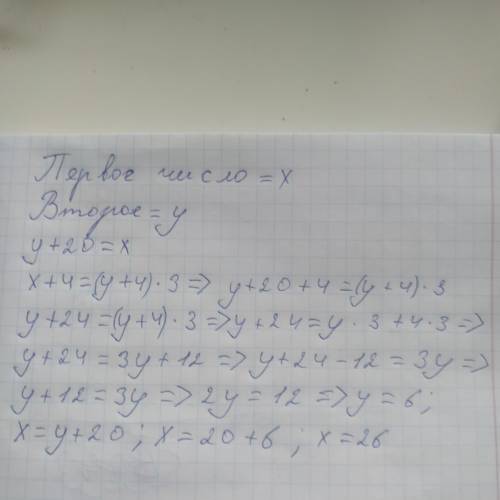 Первое число = x
Второе = y
y+20=x
x+4=(y+4)·3=> y+20+4=(y+4)·3
y+24=(y+4)·3=>y+24=y·3+4·3=>
y+24=3y+12=>y+24-12=3y=>
y+12=3y=>2y=12=>y=6;
x=y+20; x=20+6; x=26